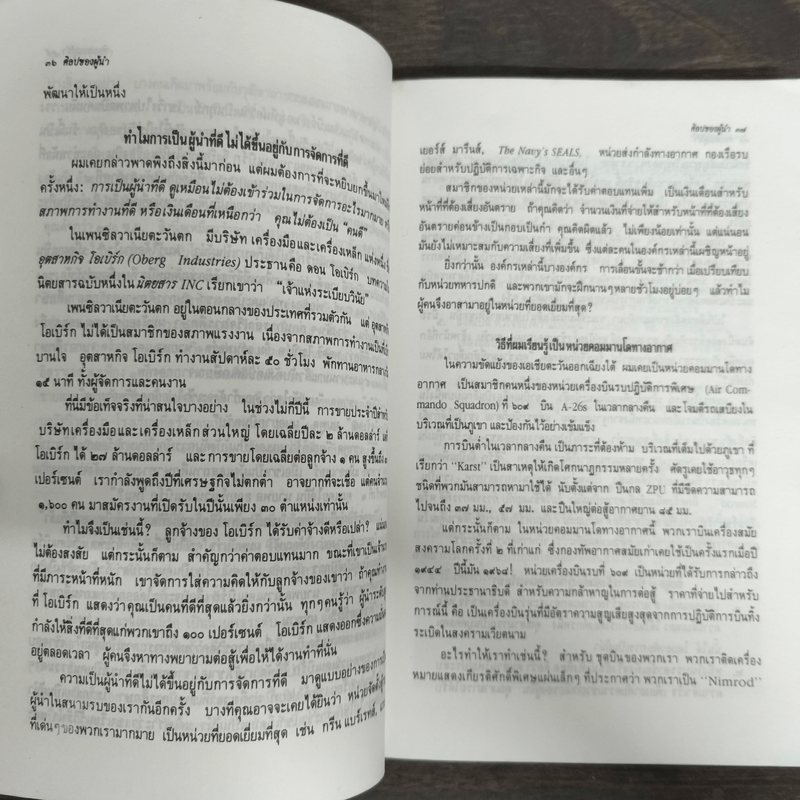 ๓๖ ศิลปของผู้นำ
พัฒนาให้เป็นหนึ่ง
ทำไมการเป็นผู้นำที่ดี ไม่ได้ขึ้นอยู่กับการจัดการที่ดี
ผมเคยกล่าวพาดพิงถึงสิ่งนี้มาก่อน แต่ผมต้องการที่จะหยิบยกขึ้นมาใน
ครั้งหนึ่ง: การเป็นผู้นำที่ดี ดูเหมือนไม่ต้องเข้าร่วมในการจัดการอะไรมากมาย
สภาพการทำงานที่ดี หรือเงินเดือนที่เหนือกว่า คุณไม่ต้องเป็น "คนดี"
ในเพนซิลวาเนียตะวันตก มีบริษัท เครื่องมือและเครื่องเหล็ก แห่งหนึ่ง
อุตสาหกิจ โอเบิร์ก (Oberg Industries) ประธานคือ ดอน โอเบิร์ก บทความ
นิตยสารฉบับหนึ่งใน นิตยสาร INC เรียกเขาว่า "เจ้าแห่งระเบียบวินัย"
เพนซิลวาเนียตะวันตก อยู่ในตอนกลางของประเทศที่รวมตัวกัน แต่ อุตสาหกิจ
โอเบิร์ก ไม่ได้เป็นสมาชิกของสภาพแรงงาน เนื่องจากสภาพการทำงานเป็นที่
บานใจ อุตสาหกิจ โอเบิร์ก ทำงานสัปดาห์ละ ๕๐ ชั่วโมง พักทานอาหารกลางวัน
๑๕ นาที ทั้งผู้จัดการและคนงาน
ที่นี่มีข้อเท็จจริงที่น่าสนใจบางอย่าง ในช่วงไม่กี่ปีนี้ การขายประจำปีสำหรับ
บริษัทเครื่องมือและเครื่องเหล็กส่วนใหญ่ โดยเฉลี่ยปีละ ๒ ล้านดอลล่าร์ แต่
โอเบิร์ก ได้ ๒๗ ล้านดอลล่าร์ และการขายโดยเฉลี่ยต่อลูกจ้าง ๑ คน สูงขึ้นถึง
เปอร์เซนต์ เรากำลังพูดถึงปีที่เศรษฐกิจไม่ตกต่ำ อาจยากที่จะเชื่อ แต่คนจำนวน
๑,๖๐๐ คน มาสมัครงานที่เปิดรับในปีนั้นเพียง ๓๐ ตำแหน่งเท่านั้น
ทำไมจึงเป็นเช่นนี้? ลูกจ้างของ โอเบิร์ก ได้รับค่าจ้างดีหรือเปล่า?
ไม่ต้องสงสัย แต่กระนั้นก็ตาม สำคัญกว่าค่าตอบแทนมาก ขณะที่เขาเป็น
ที่มีภาระหน้าที่หนัก เขาจัดการใส่ความคิดให้กับลูกจ้างของเขาว่า ถ้าคุณทำงาน
ที่ โอเบิร์ก แสดงว่าคุณเป็นคนที่ดีที่สุดแล้วยิ่งกว่านั้น ทุกๆคนรู้ว่า ผู้นำระดับ
กำลังให้สิ่งที่ดีที่สุดแก่พวกเขาถึง ๑๐๐ เปอร์เซนต์ โอเบิร์ก แสดงออกซึ่งความ
อยู่ตลอดเวลา ผู้คนจึงหาทางพยายามต่อสู้เพื่อให้ได้งานทำที่นั่น
ความเป็นผู้นำที่ดีไม่ได้ขึ้นอยู่กับการจัดการที่ดี มาดูแบบอย่างของการเป็น
ผู้นำในสนามรบของเรากันอีกครั้ง บางทีคุณอาจจะเคยได้ยินว่า หน่วยจัดตั้ง
ที่เด่นๆของพวกเรามากมาย เป็นหน่วยที่ยอดเยี่ยมที่สุด เช่น กรีน แบร์เรทส์,
ศิลปของผู้นำ ๓๗
เยอร์ส์ มารีนส์, The Navy's SEALS, หน่วยส่งกำลังทางอากาศ กองเรือรบ
ย่อยสำหรับปฏิบัติการเฉพาะกิจ และอื่นๆ
สมาชิกของหน่วยเหล่านี้มักจะได้รับค่าตอบแทนเพิ่ม เป็นเงินเดือนสำหรับ
หน้าที่ที่ต้องเสี่ยงอันตราย ถ้าคุณคิดว่า จำนวนเงินที่จ่ายให้สำหรับหน้าที่ที่ต้องเสี่ยง
อันตรายค่อนข้างเป็นกอบเป็นกำ คุณคิดผิดแล้ว ไม่เพียงน้อยเท่านั้น แต่แน่นอน
มันยังไม่เหมาะสมกับความเสี่ยงที่เพิ่มขึ้น ซึ่งแต่ละคนในองค์กรเหล่านี้เผชิญหน้าอยู่
ยิ่งกว่านั้น องค์กรเหล่านี้บางองค์กร การเลื่อนขั้นจะช้ากว่า เมื่อเปรียบเทียบ
กับหน่วยทหารปกติ และพวกเขามักจะฝึกนานๆหลายชั่วโมงอยู่บ่อยๆ แล้วทำไม
ผู้คนจึงอาสามาอยู่ในหน่วยที่ยอดเยี่ยมที่สุด?
วิธีที่ผมเรียนรู้เป็นหน่วยคอมมานโดทางอากาศ
ในความขัดแย้งของเอเชียตะวันออกเฉียงใต้ ผมเคยเป็นหน่วยคอมมานโดทาง
อากาศ เป็นสมาชิกคนหนึ่งของหน่วยเครื่องบินรบปฏิบัติการพิเศษ (Air Com-
mando Squadron) ที่ ๖๐๙ บิน A-26s ในเวลากลางคืน และโจมตีรถเสบียงใน
บริเวณที่เป็นภูเขา และป้องกันไว้อย่างเข้มแข็ง
การบินต่ำในเวลากลางคืน เป็นภาระที่ต้องห้าม บริเวณที่เต็มไปด้วยภูเขา ที่
เรียกว่า "Karst" เป็นสาเหตุให้เกิดโศกนาฏกรรมหลายครั้ง ศัตรูเคยใช้อาวุธทุกๆ
ชนิดที่พวกมันสามารถหามาใช้ได้ นับตั้งแต่จาก ปืนกล ZPU ที่มีขีดความสามารถ
ไปจนถึง ๓๗ มม., ๕๗ มม. และปืนใหญ่ต่อสู้อากาศยาน ๘๕ มม.
แต่กระนั้นก็ตาม ในหน่วยคอมมานโดทางอากาศนี้ พวกเราบินเครื่องสมัย
สงครามโลกครั้งที่ ๒ ที่เก่าแก่ ซึ่งกองทัพอากาศสมัยเก่าเคยใช้เป็นครั้งแรกเมื่อปี
๑๙๔๔ ปีนี้มัน ๑๙๖๘! หน่วยเครื่องบินรบที่ ๖๐๙ เป็นหน่วยที่ได้รับการกล่าวถึง
จากท่านประธานาธิบดี สำหรับความกล้าหาญในการต่อสู้ ราคาที่จ่ายไปสำหรับ
การณ์นี้ คือ เป็นเครื่องบินรุ่นที่มีอัตราความสูญเสียสูงสุดจากการปฏิบัติการบินทิ้ง
ระเบิดในสงครามเวียดนาม
อะไรทำให้เราทำเช่นนี้? สำหรับ ชุดบินของพวกเรา พวกเราติดเครื่อง
หมายแสดงเกียรติศักดิ์พิเศษแผ่นเล็กๆ ที่ประกาศว่า พวกเราเป็น "Nimrod"